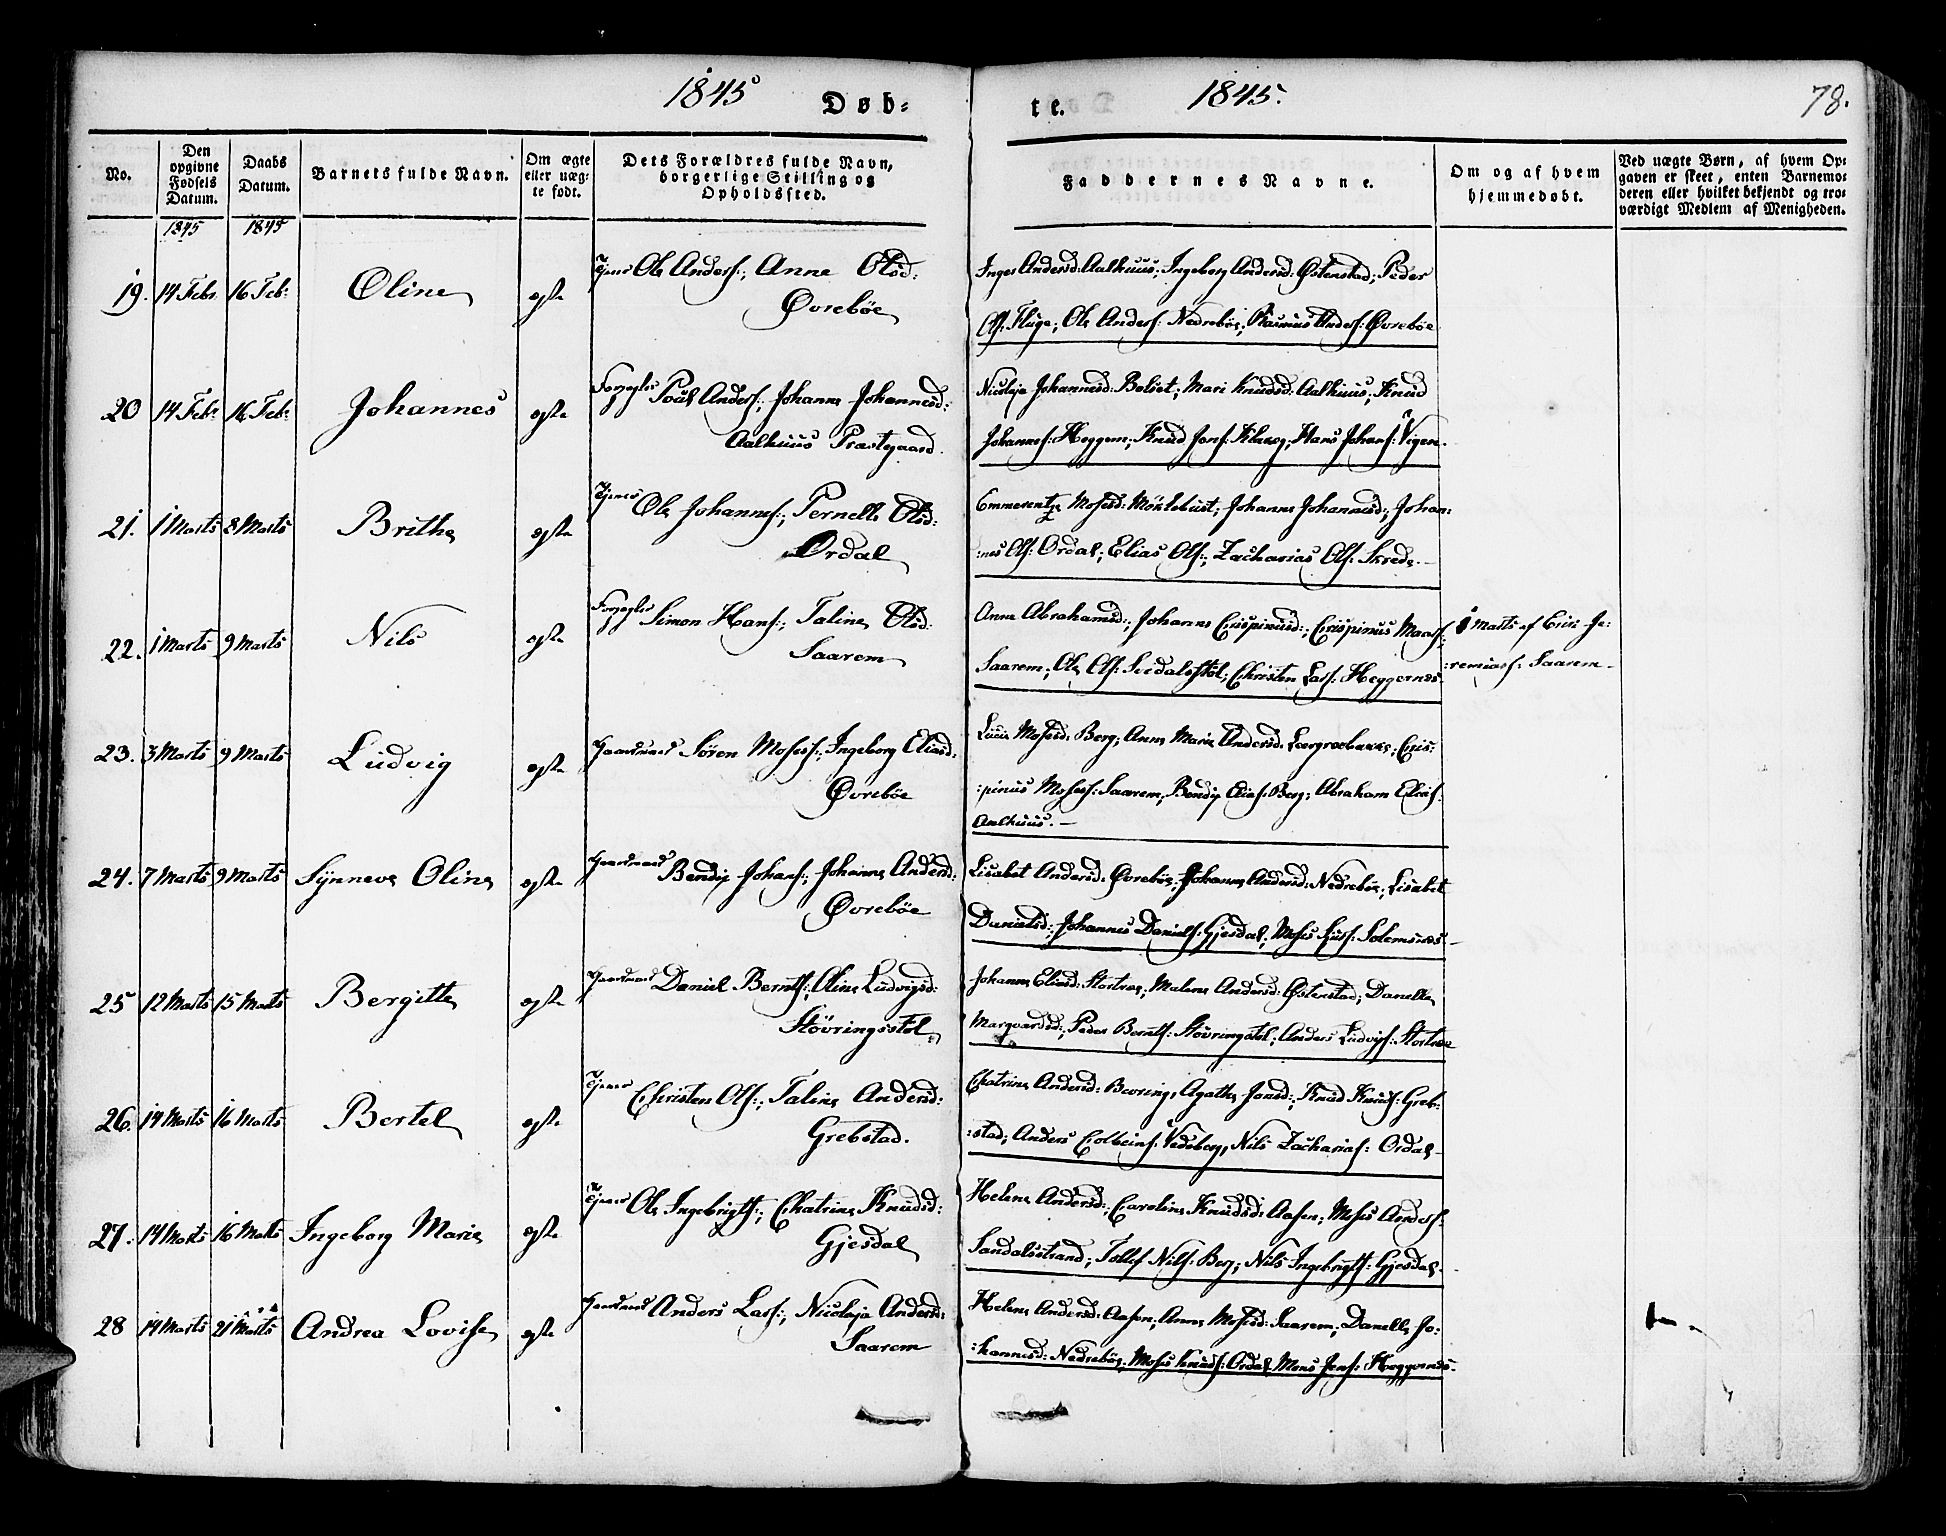 1845 Døb=
te. 1845. 78.
No.
Den opgivne Fødsels Datum.
Daabs Datum.
Barnets fulde Navn.
Om ægte eller uægte født.
Dets Forældres fulde Navn, borgerlige Stilling og Opholdssted.
Faddernes Navne.
Om og af hvem hjemmedøbt.
Ved uægte Børn, af hvem Opgaven er skeet, enten Barnemoderen eller hvilket bekjendt og troværdigt Medlem af Menigheden.
1845 1845
19. 14 Febr 16 Feb: Oline egte Ole Anders:, Anne Olsd:
Øvrebøe
Inger Andersd: Aalhuus; Ingeborg Andersd: Østenstad; Peder
Ols: Fluge; Ole Anders: Nedrebøe; Rasmus Anders: Øvrebøe
20 14 Febr 16 Feb: Johannes egte Poul Anders:, Johanne Johannesd:
Aalhuus Præstegaard.
Nicolaja Johannesd: Bolset; Mari Knudsd: Aalhuus; Knud
Johannes: Heggem; Knud Jons: Hans Johans: Vigen.
21. 1 Marts 8 Marts Brithe egte Ole Johannes:, Pernelle Olsd:
Ordal
Emmerentze Mosesd: Myklebust; Johanne Johannesd:, Johan:
:nes Ols: Ordal; Elias Ols:, Zacharias Ols: Skrede.
22. 1 Marts 9 Marts Nils egte Simon Hans:, Taline Olsd:
Saarem
Anne Abrahamsd:, Johanne Crispinusd:, Crispinus
Saarem; Ole Ols: Christen Lass: Heggernes
8 Marts af Eric Je:
:remiass: Saarem
23. 3 Marts 9 Marts Ludvig egte Gaardmand Søren Moses:, Ingeborg Eliasd:
Øvrebøe
Lucie Mosesd: Berg; Anne Marie Andersd: Cris:
:pinus Moses: Saarem; Bendix Elias: Berg; Abraham Elias:
Aalhuus.
24. 7 Marts 9 Marts Synneve Oline egte Gaardmand Bendix Johans:, Johanne Andersd:
Øvrebøe
Lisabet Andersd: Øvrebøe; Johanne Andersd: Nedrebøe; Lisabet
Danielsd:, Johannes Daniels: Gjesdal; Moses Solemsnes
25 12 Marts 15 Marts Bergitte egte Gaardmand Daniel Bernts:, Oline Ludvigsd:
Støvringsstøl
Johanne Eliasd: Stortræe; Malene Andersd: Østenstad; Danelle
Marqvardsd:, Peder Bernts: Støvringstøl; Anders Ludvigs: Stortræe
26. 14 Marts 16 Marts Bertel egte Christen Ols:, Taline Andersd:
Grebstad.
Chatrine Andersd: Agathe Jonsd:, Knud Knuds: Greb:
:stad; Anders Colbeins: Vedeberg, Nils Zacharias: Ordal
27. 14 Marts 16 Marts Ingeborg Marie egte Ole Ingebrigts:, Chatrine Knudsd:
Gjesdal
Helene Andersd:, Caroline Knudsd: Aasen; Moses Anders:
Sandalsstrand; Tollef Nils: Berg; Nils Ingebrigts: Gjesdal.
28 14 Marts 21 Marts Andrea Lovise egte Gaardmand Anders Lass:, Nicolaja Andersd:
Saarem
Helene Andersd: Aasen; Anne Mosesd: Saarem; Danelle Jo:
:hannesd: Nedrebøe; Moses Knuds: Ordal, Mons Jens: Heggernes